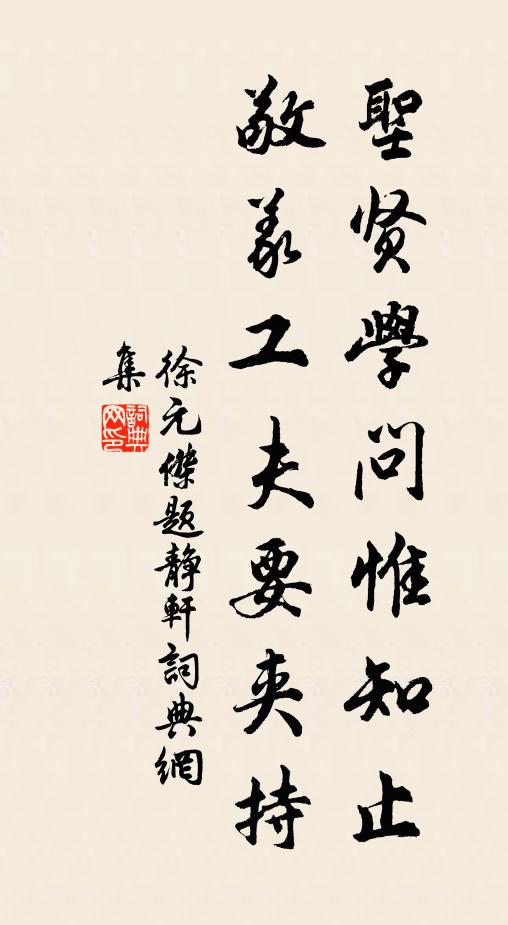 聖贤學問惟知止
敬義工夫要夾持
徐元傑題靜軒詞典網
集
詞典
网印